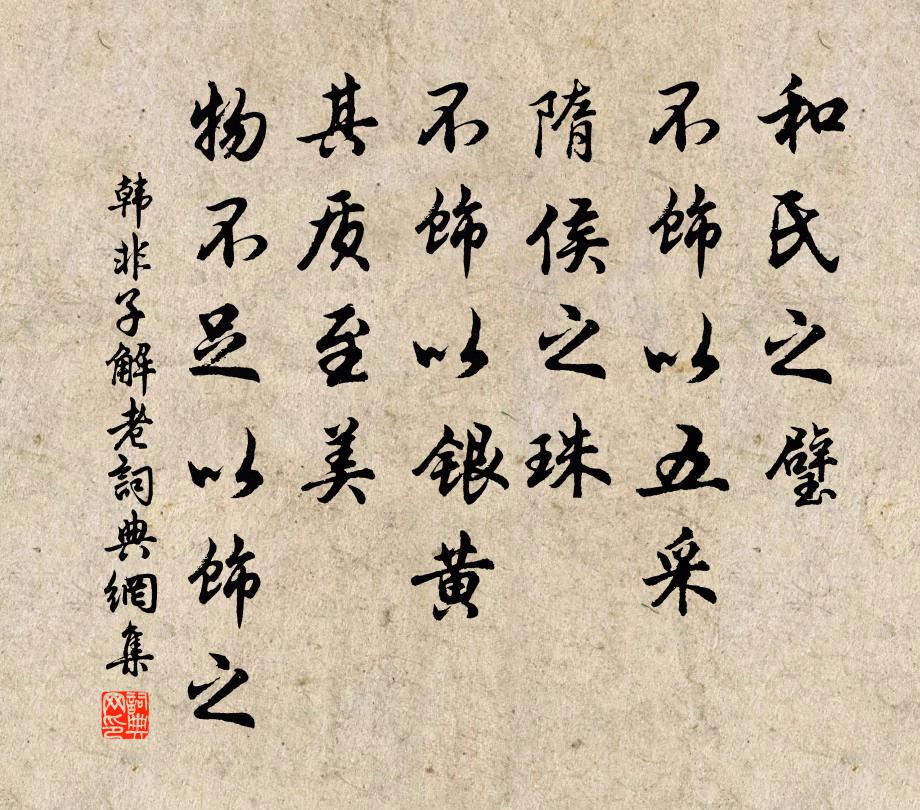 和氏之璧
不饰以五采
隋侯之珠
不饰以银黄
其质至美
物不足以饰之
韩非子解老詞典網集
詞典
网印